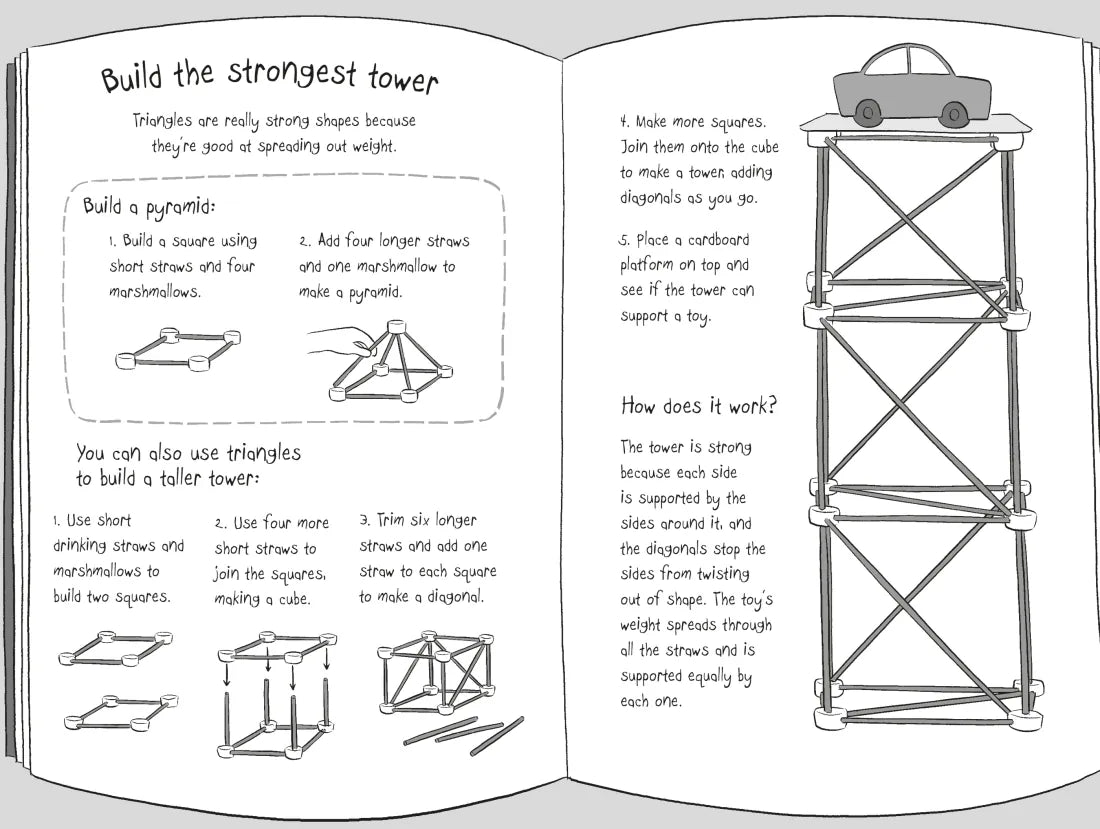 Build the strongest tower
Triangles are really strong shapes because
they're good at spreading out weight.
Build a pyramid:
1. Build a square using
short straws and four
marshmallows.
2. Add four longer straws
and one marshmallow to
make a pyramid.
You can also use triangles
to build a taller tower:
1. Use short
drinking straws and
marshmallows to
build two squares.
2. Use four more
short straws to
join the squares,
making a cube.
3. Trim six longer
straws and add one
straw to each square
to make a diagonal.
4. Make more squares.
Join them onto the cube
to make a tower, adding
diagonals as you go.
5. Place a cardboard
platform on top and
see if the tower can
support a toy.
How does it work?
The tower is strong
because each side
is supported by the
sides around it, and
the diagonals stop the
sides from twisting
out of shape. The toy's
weight spreads through
all the straws and is
supported equally by
each one.